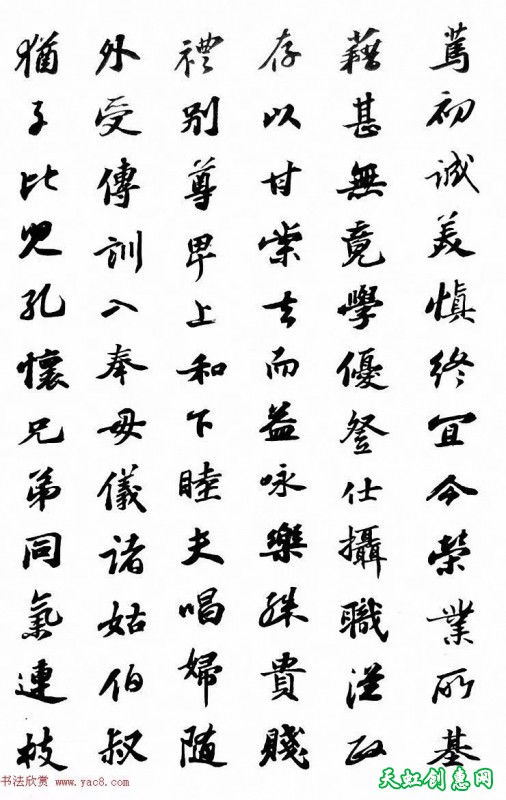 篤初誠美慎終宜令榮業所基
藉甚無竟學優登仕攝職從政
存以甘棠去而益詠樂殊貴賤
禮別尊卑上和下睦夫唱婦隨
外受傳訓入奉母儀諸姑伯叔
猶子比兒孔懷兄弟同氣連枝
书法欣赏 www.yac8.com
天虹创惠网